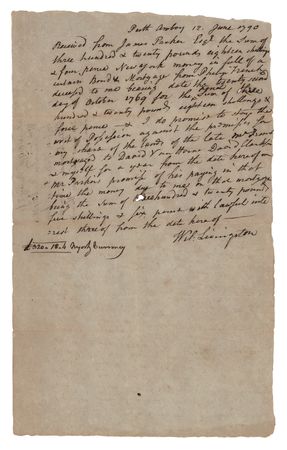 Perth Amboy 12. June 1790
Received from James Parker Esqr. the Sum of
three hundred & twenty pounds eighteen shillings
& four pence New York money in full of a
certain Bond & Mortgage from Philip French
deceased to me bearing date the twenty
day of October 1769 for the Sum of three
hundred & twenty pounds eighteen shillings &
four pence & I do promise to stay the
writ of Possession against the premises for
my share of the lands of the late Mr French
mortgaged to David V Horne David Clarkson
& myself for a year from the date hereof on
Mr Parker's promise of his paying in that
time the money due to me on this mortgage
being the Sum of three hundred & twenty pounds
five shillings & six pence with Lawful inte
rest thereof from the date hereof
Wil. Livingston
£320.18.4 New York Currency